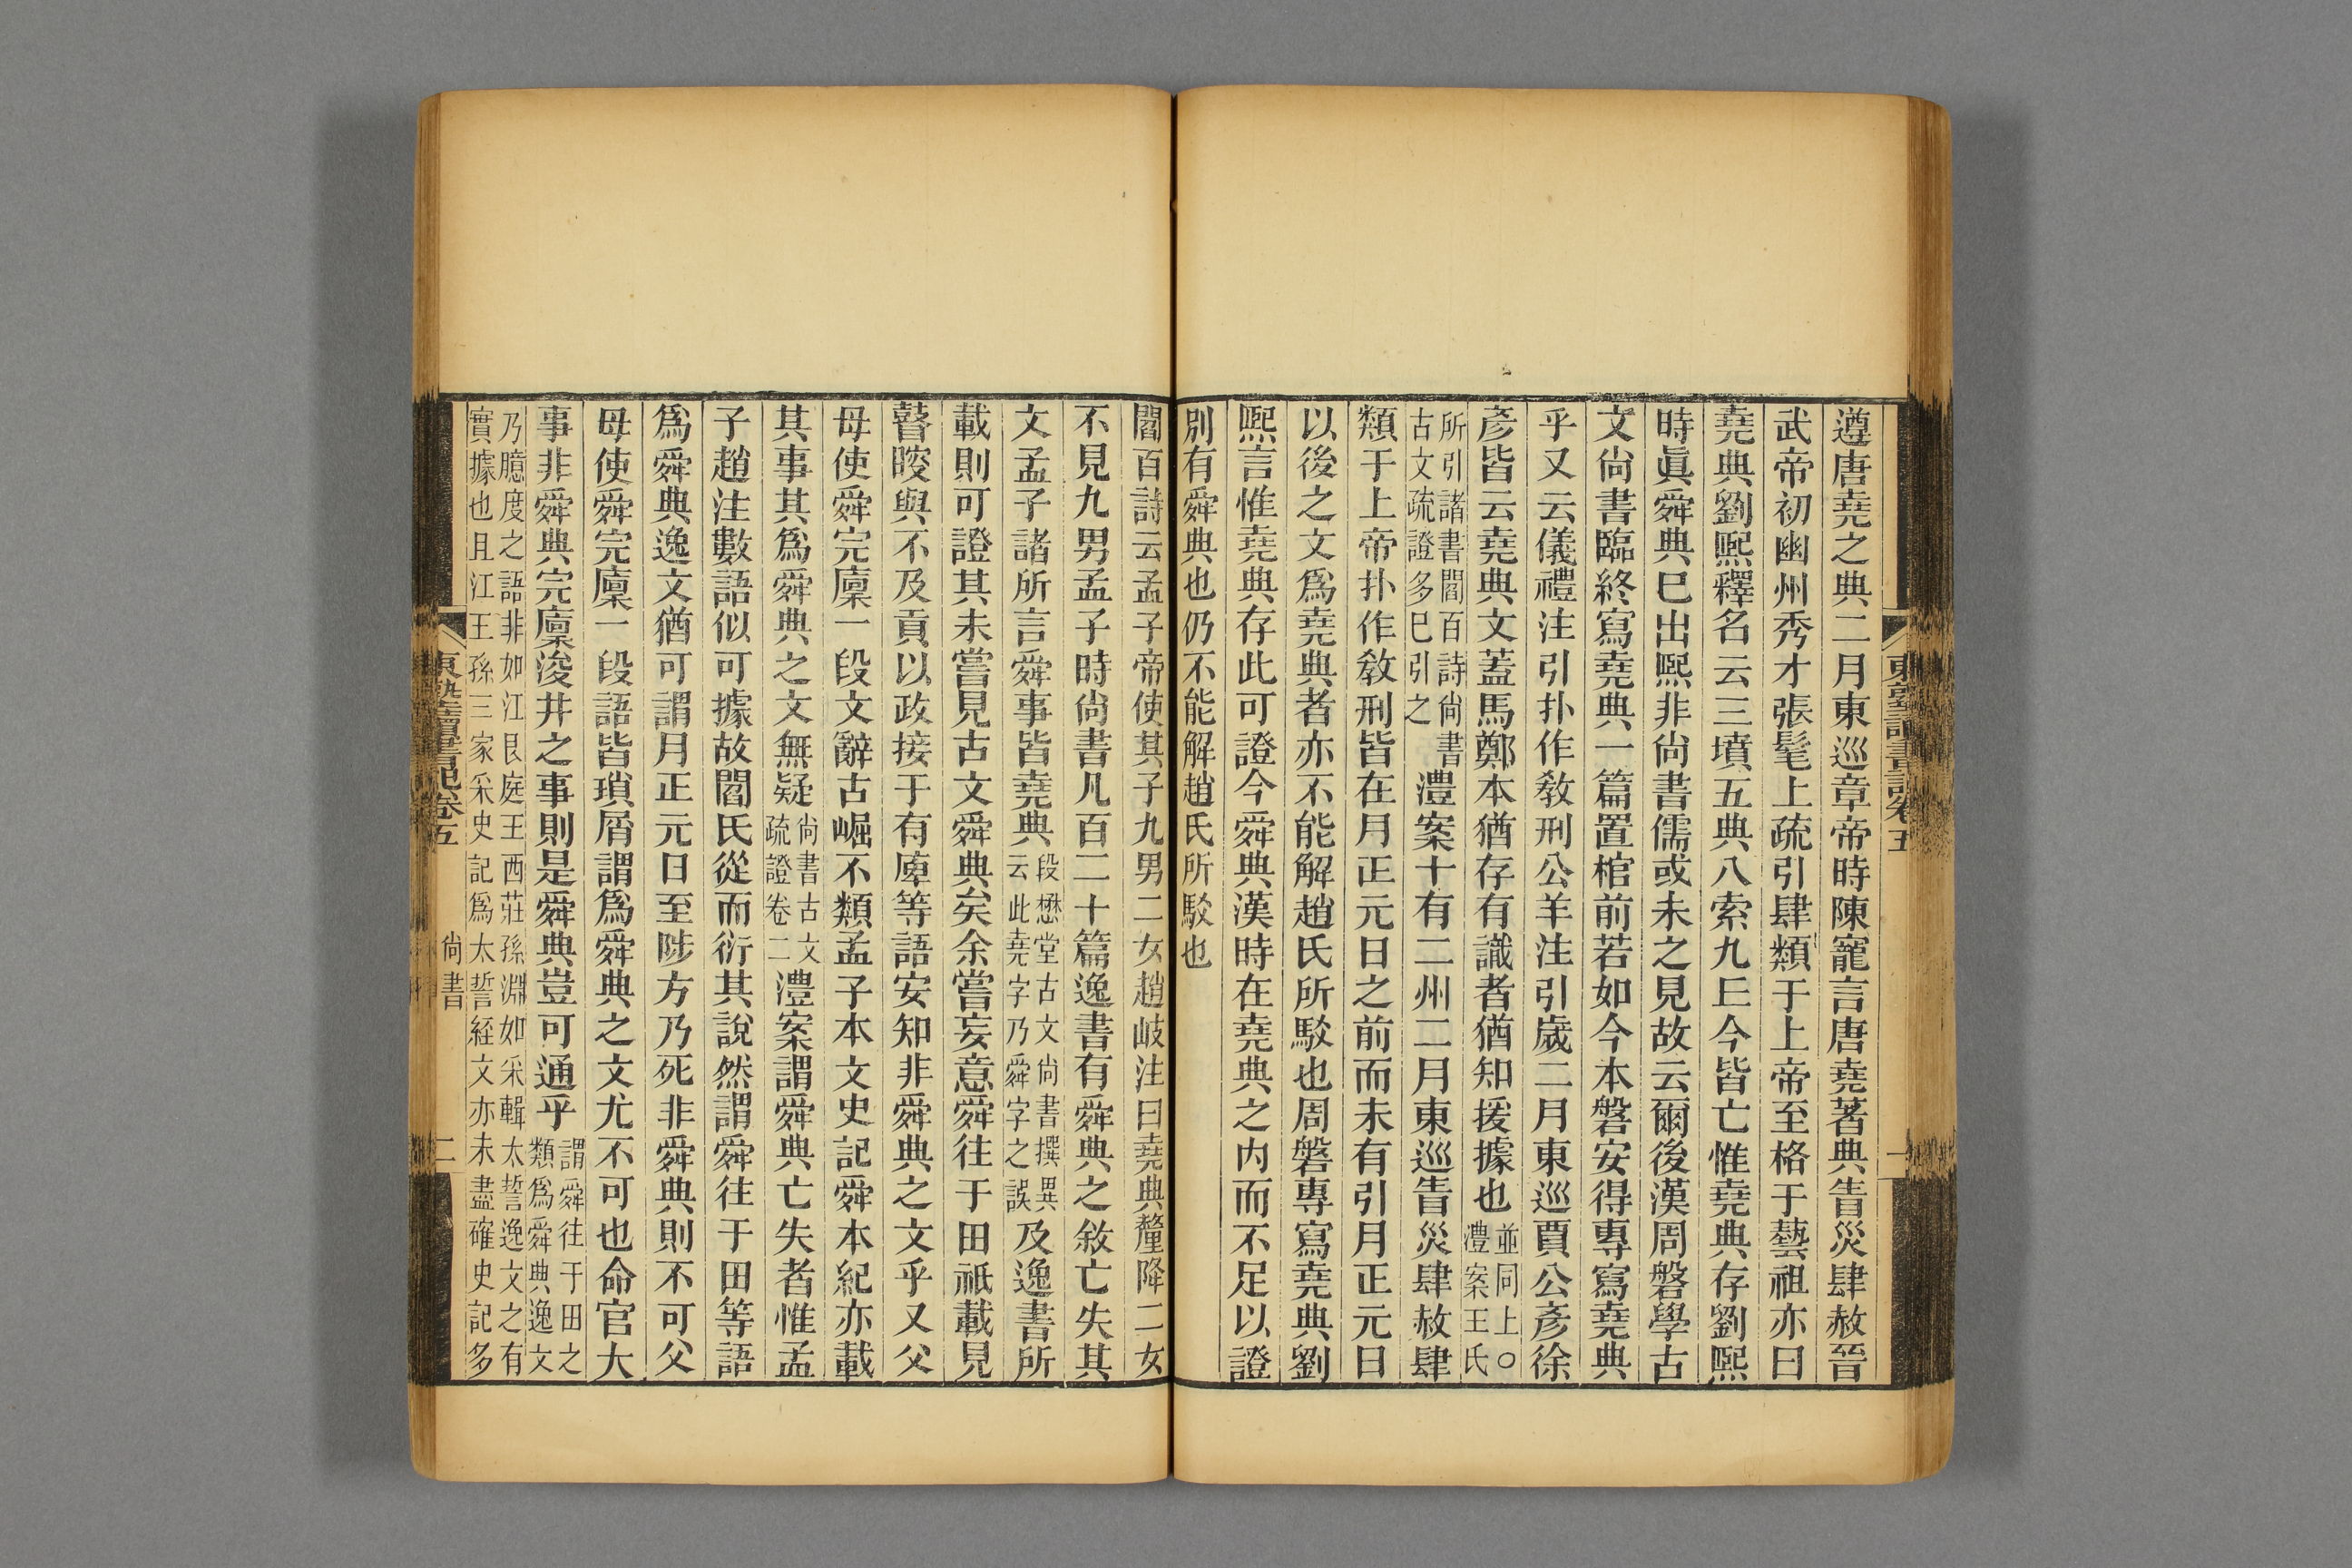 遵唐堯之典二月東巡章帝時陳寵言唐堯著典眚災肆赦晉
武帝初幽州秀才張髦上疏引肆類于上帝至格于藝祖亦曰
堯典劉熙釋名云三墳五典八索九丘今皆亡惟堯典存劉熙
時眞舜典已出熙非尚書儒或未之見故云爾後漢周磐學古
文尚書臨終寫堯典一篇置棺前若如今本磐安得專寫堯典
乎又云儀禮注引扑作敎刑公羊注引歲二月東巡賈公彥徐
彥皆云堯典文蓋馬鄭本猶存有識者猶知援據也並同上○澧案王氏
所引諸書閻百詩尚書古文疏證多已引之澧案十有二州二月東巡眚災肆赦肆
類于上帝扑作敎刑皆在月正元日之前而未有引月正元日
以後之文爲堯典者亦不能解趙氏所駁也周磐專寫堯典劉
熙言惟堯典存此可證今舜典漢時在堯典之內而不足以證
別有舜典也仍不能解趙氏所駁也
閻百詩云孟子帝使其子九男二女趙岐注曰堯典釐降二女
不見九男孟子時尚書凡百二十篇逸書有舜典之敘亡失其
文孟子諸所言舜事皆堯典段懋堂古文尚書撰異云此堯字乃舜字之誤及逸書所
載則可證其未嘗見古文舜典矣余嘗妄意舜往于田祇載見
瞽瞍與不及貢以政接于有庳等語安知非舜典之文乎又父
母使舜完廩一段文辭古崛不類孟子本文史記舜本紀亦載
其事其爲舜典之文無疑尚書古文疏證卷二澧案謂舜典亡失者惟孟
子趙注數語似可據故閻氏從而衍其說然謂舜往于田等語
爲舜典逸文猶可謂月正元日至陟方乃死非舜典則不可父
母使舜完廩一段語皆瑣屑謂爲舜典之文尤不可也命官大
事非舜典完廩浚井之事則是舜典豈可通乎謂舜往于田之類爲舜典逸文
乃臆度之語非如江艮庭王西莊孫淵如采輯太誓逸文之有
實據也且江王孫三家采史記爲太誓経文亦未盡確史記多
東塾讀書記卷五
尚書
二